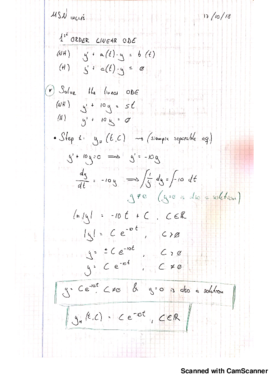 12/10/18
1st ORDER LINEAR ODE
(NH) y' + a(t)·y = b(t)
(H) y' + a(t)·y = 0
Solve the linear ODE
(NH) y' + 10y = 5t
(H) y' + 10y = 0
• Step 1: (t,C) → (simpler separable eq)
y' + 10y = 0 ⟺ y' = -10y
dy/dt = -10y ⟺ ∫ 1/y dy = ∫ -10 dt
y ≠ 0 (y=0 is also a solution)
ln|y| = -10t + C, C∈ℝ
|y| = C e^-10t, C>0
y = ±C e^-10t, C>0
y = C e^-10t, C ≠ 0
y = C e^-10t, C≠0 & y=0 is also a solution
(t,C) = C e^-10t, C∈ℝ
Scanned with CamScanner